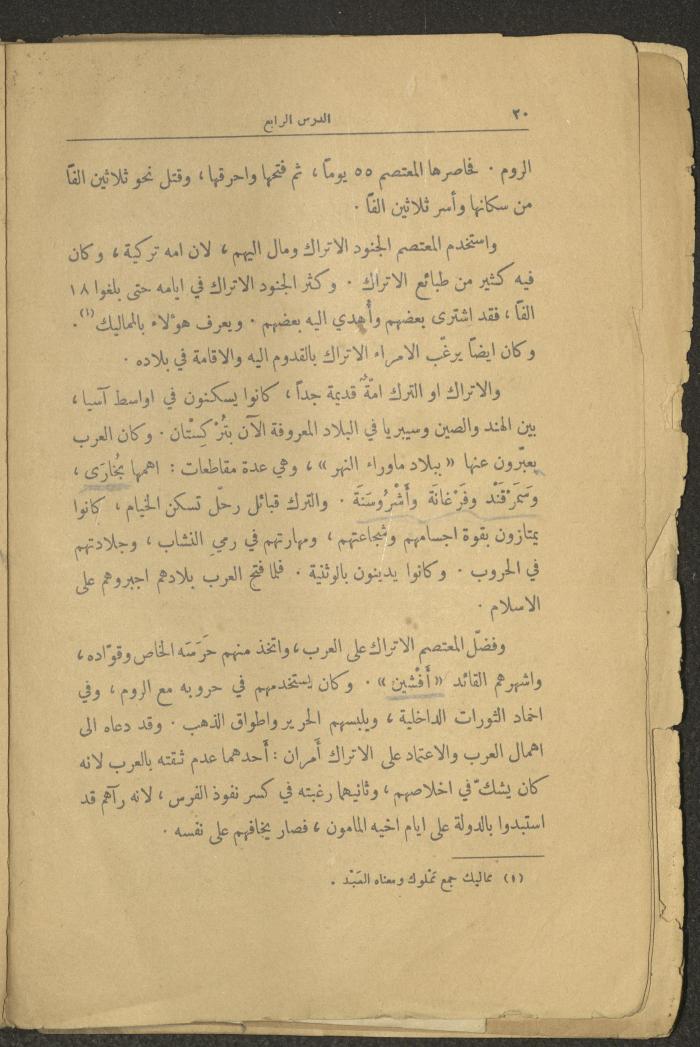 ٢٠ الدرس الرابع
الروم . فحاصرها المعتصم ٥٥ يوماً ، ثم فتحها واحرقها ، وقتل نحو ثلاثين الفاً
من سكانها وأسر ثلاثين الفاً .
واستخدم المعتصم الجنود الاتراك ومال اليهم ، لان امه تركية ، وكان
فيه كثير من طبائع الاتراك . وكثر الجنود الاتراك في ايامه حتى بلغوا ١٨
الفاً ، فقد اشترى بعضهم وأُهدي اليه بعضهم . ويعرف هوٴلاء بالمماليك (١) .
وكان ايضاً يرغّب الامراء الاتراك بالقدوم اليه والاقامة في بلاده .
والاتراك او الترك امّةٌ قديمة جداً ، كانوا يسكنون في اواسط آسيا ،
بين الهند والصين وسيبريا في البلاد المعروفة الآن بتُرْكِسْتان . وكان العرب
يعبّرون عنها « ببلاد ماوراء النهر » ، وهي عدة مقاطعات : اهمها بُخارَى ،
وَسَمَرْقَنْد وفَرْغانَة وأَشْرُوسَنَة . والترك قبائل رحّل تسكن الخيام ، كانوا
يمتازون بقوة اجسامهم وشجاعتهم ، ومهارتهم في رمي النشاب ، وجلادتهم
في الحروب . وكانوا يدينون بالوثنية . فلما فتح العرب بلادهم اجبروهم على
الاسلام .
وفضّل المعتصم الاتراك على العرب ، واتخذ منهم حَرَسَه الخاص وقوّاده ،
واشهرهم القائد « أَفْشين » . وكان يستخدمهم في حروبه مع الروم ، وفي
اخماد الثورات الداخلية ، ويلبسهم الحرير واطواق الذهب . وقد دعاه الى
اهمال العرب والاعتماد على الاتراك أَمران : أَحدهما عدم ثقته بالعرب لانه
كان يشكّ في اخلاصهم ، وثانيهما رغبته في كسر نفوذ الفرس ، لانه رآهم قد
استبدوا بالدولة على ايام اخيه المامون ، فصار يخافهم على نفسه .
(١) مماليك جمع مَمْلوك ومعناه العَبْد .